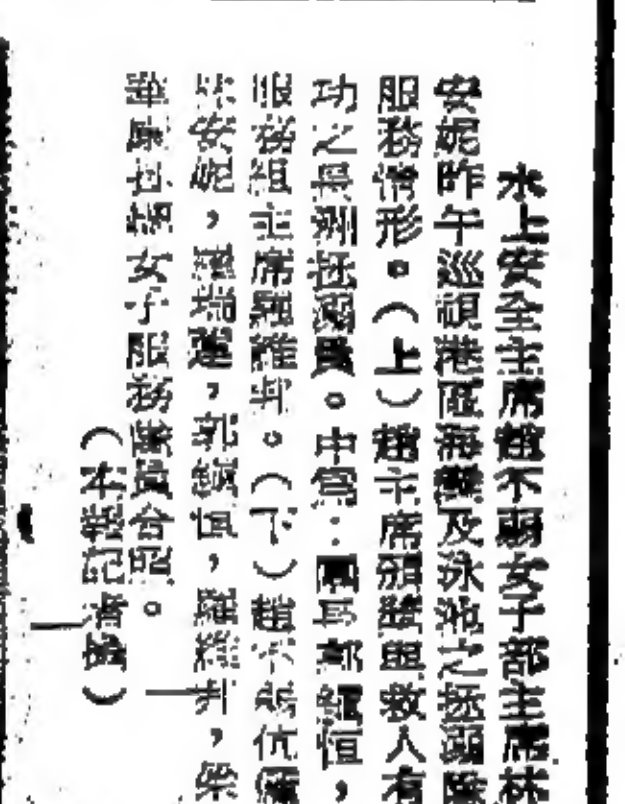 水上安全主席趙不弱女子部主席林
安妮昨午巡視港區海灘及泳池之拯溺隊
服務情形。(上)趙主席頒獎與救人有
功之長洲拯溺員。中為:郭鎮恒,
服務組主席羅維邦。(下)趙不弱伉儷
林安妮,羅瑞蓮,郭鎮恒,羅維邦,梁
華康拯溺女子服務隊員合照。
(本報記者攝)